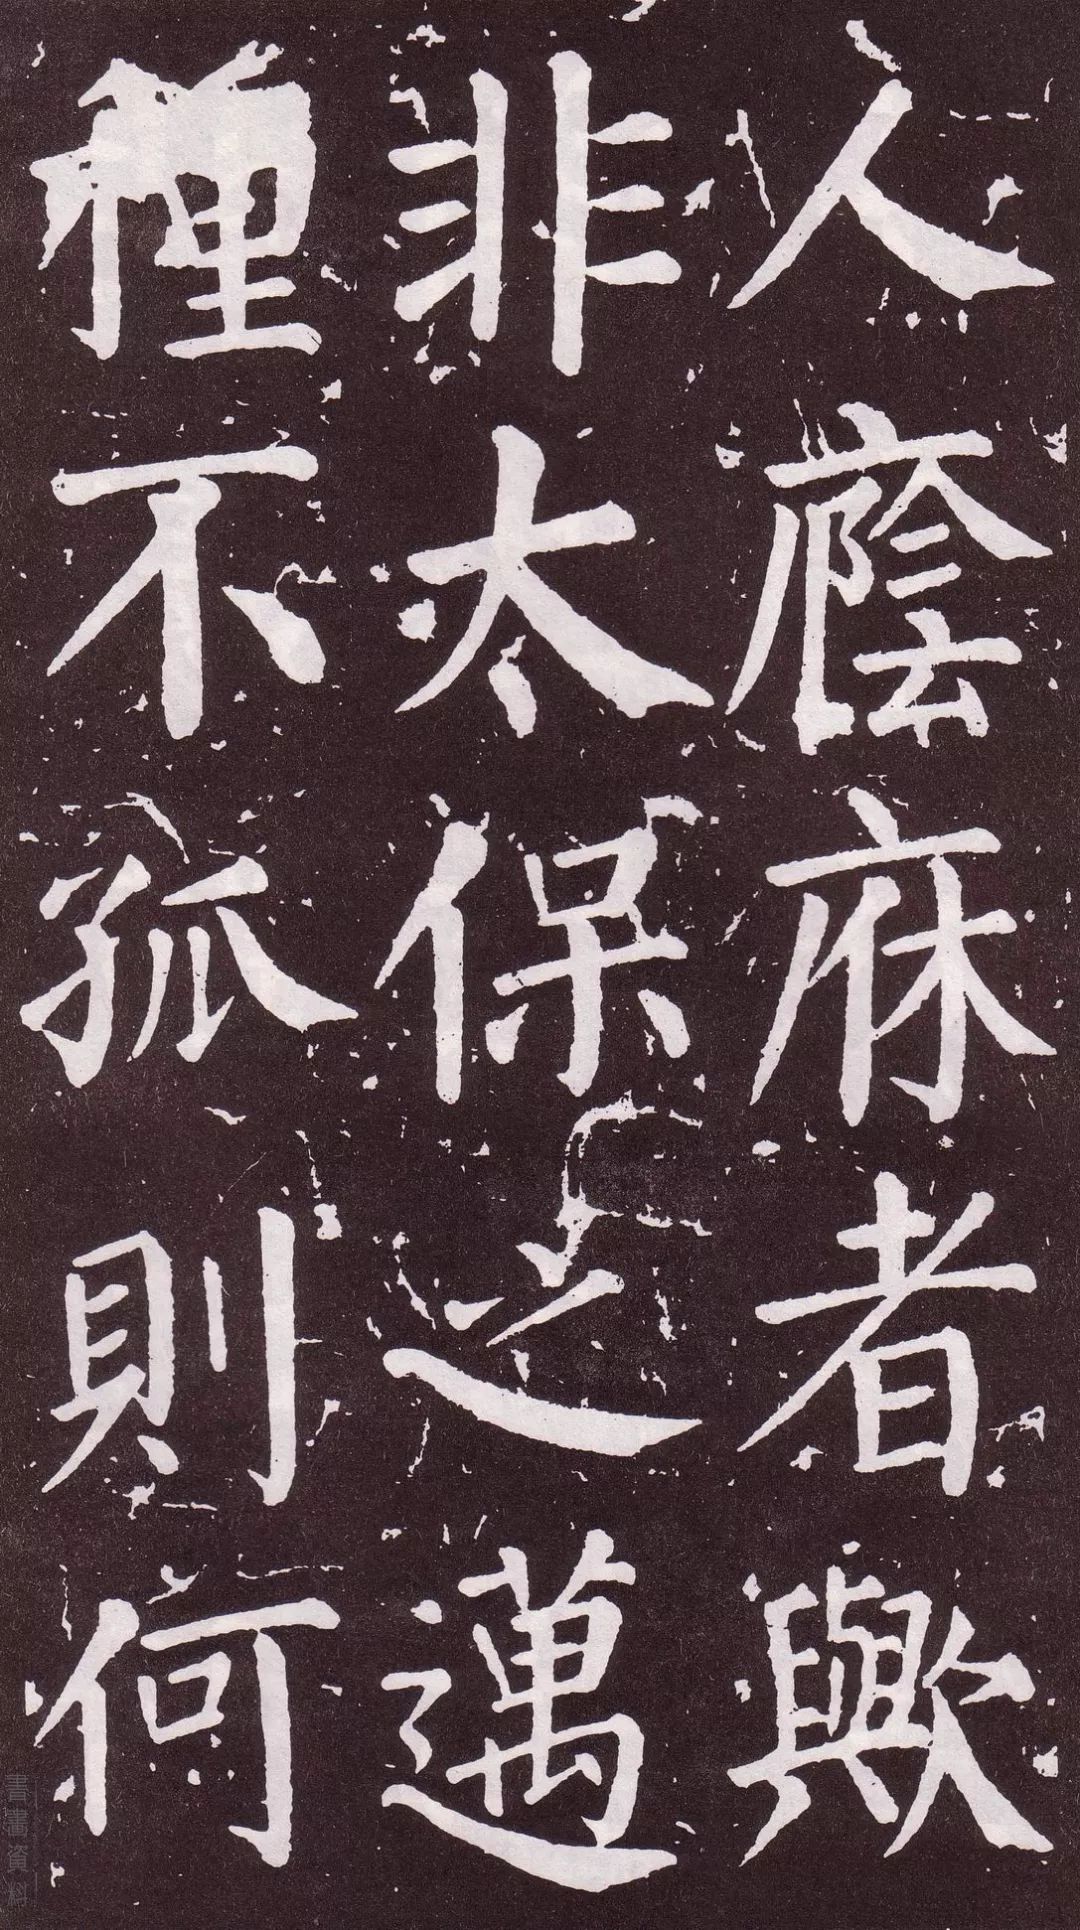 人廕庥者歟
非太保之邁
種不孤則何
書畫資料